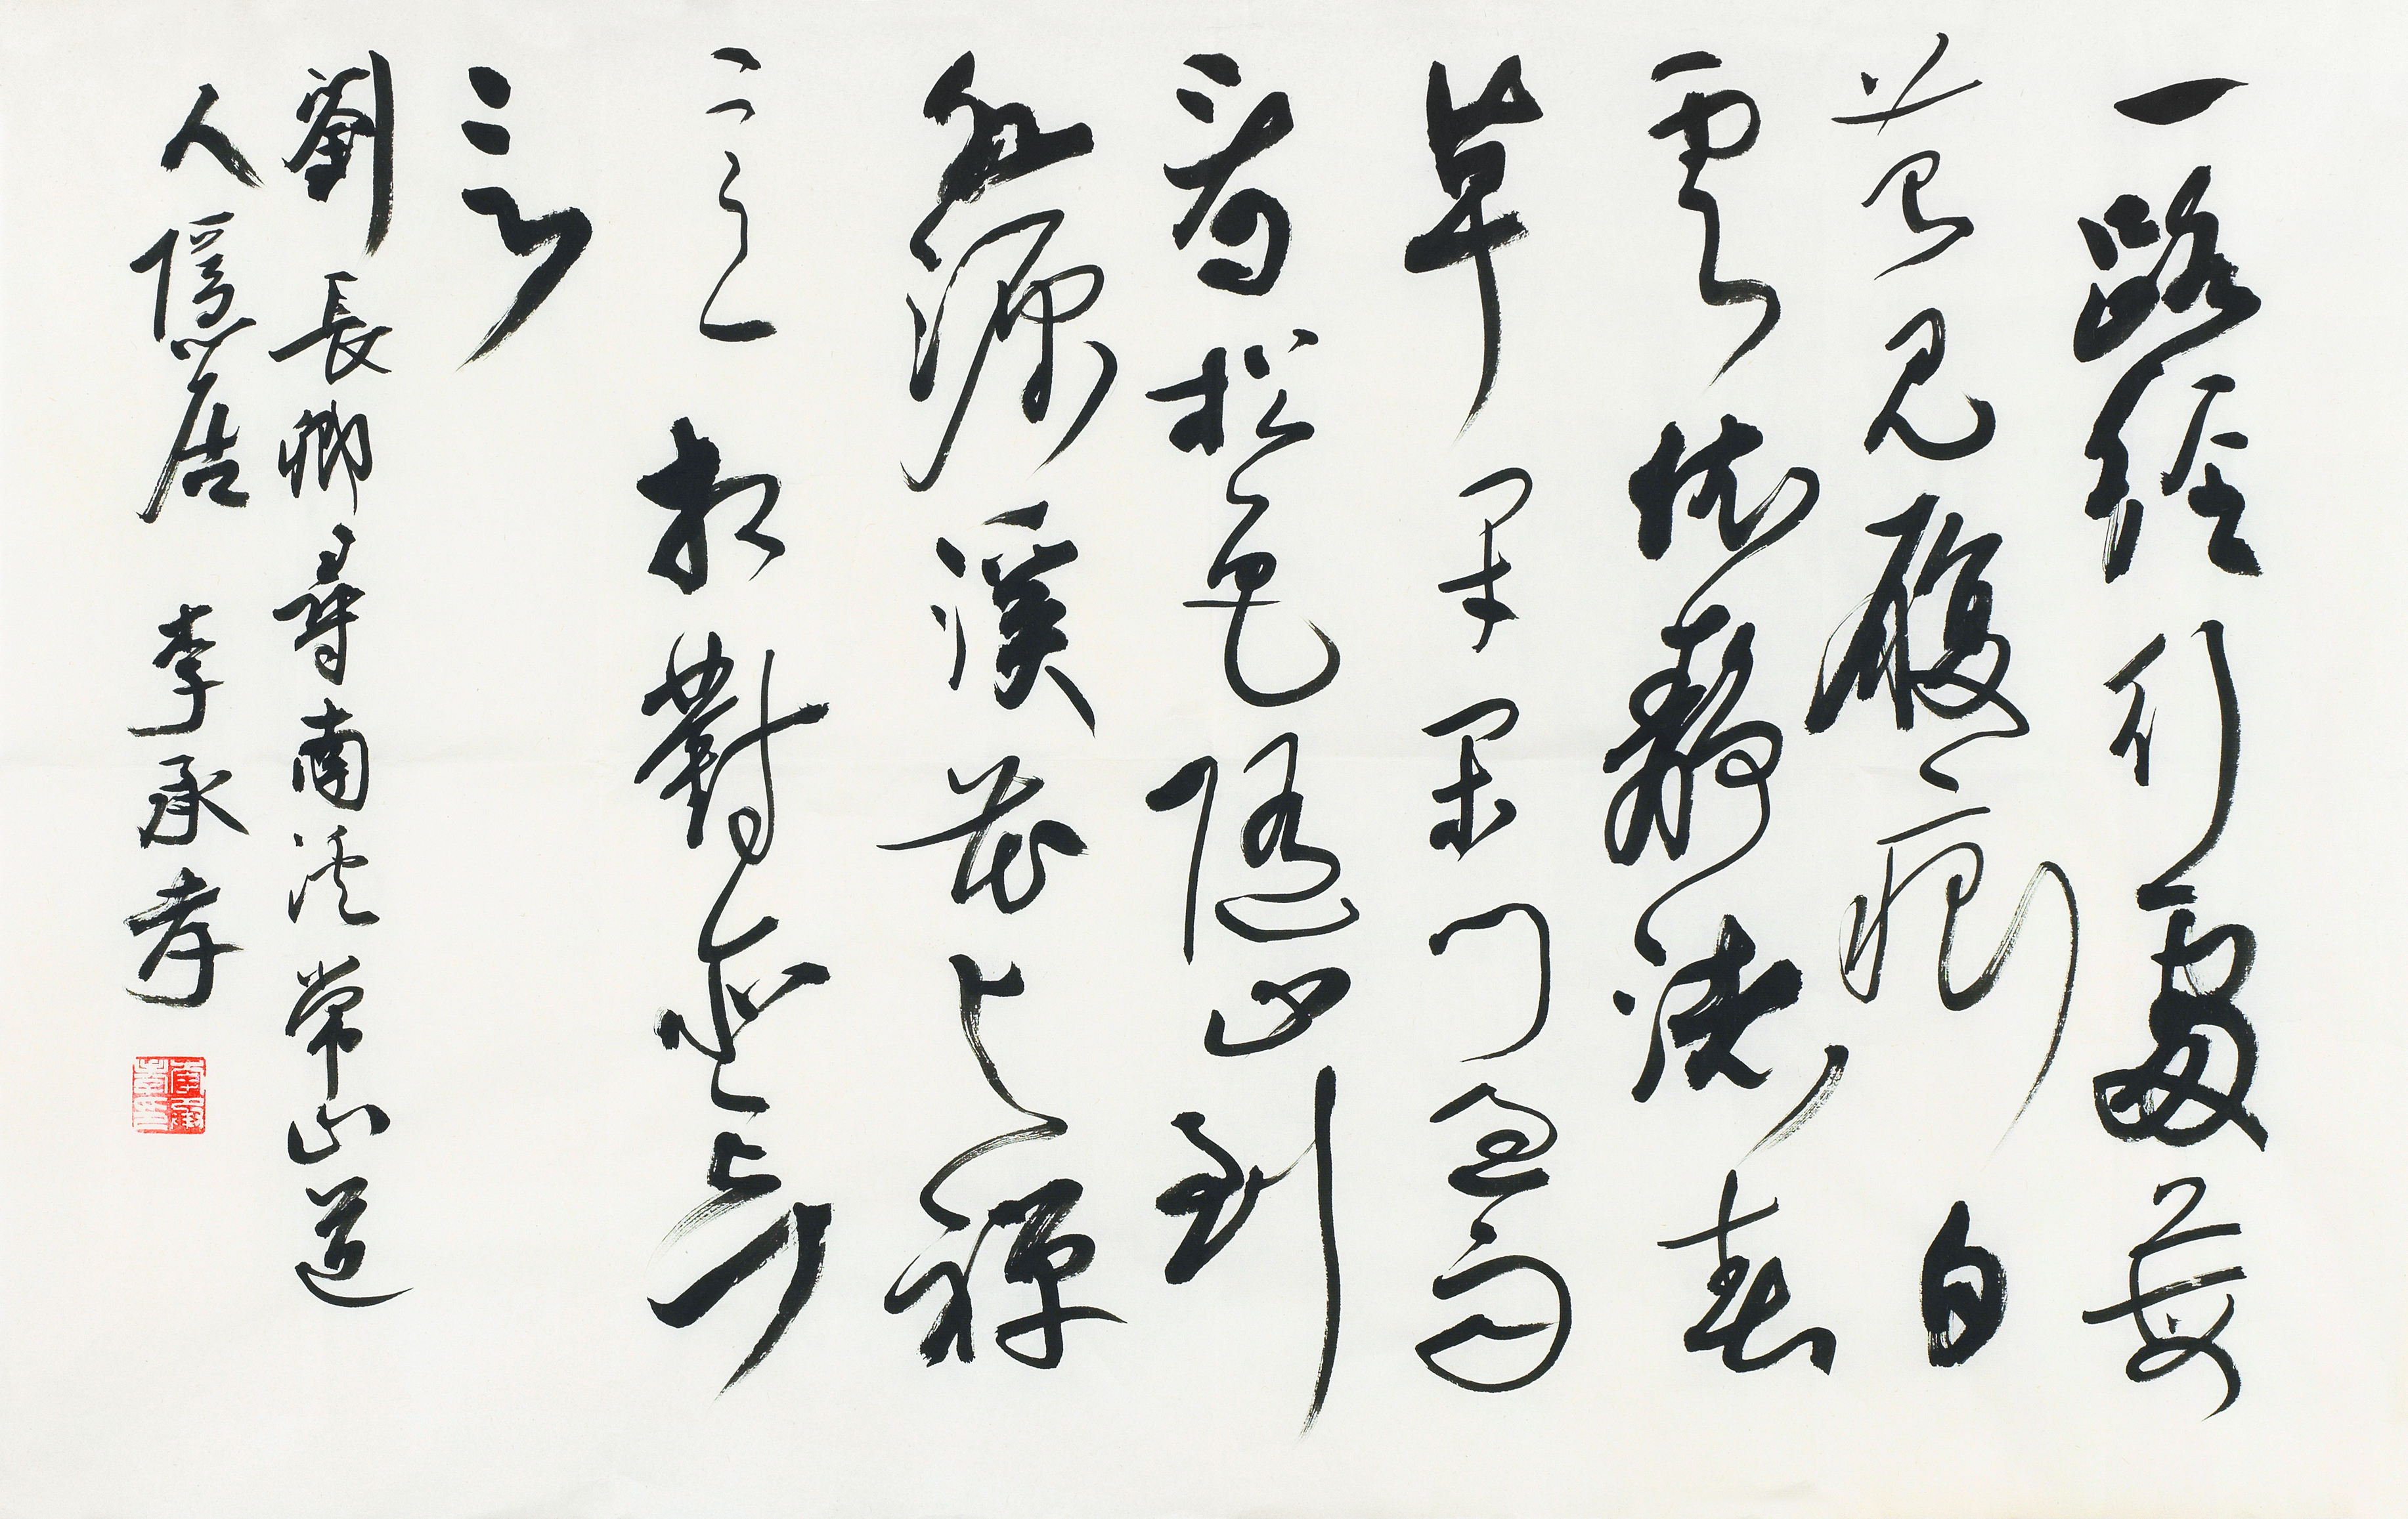 一路經行處莓
苔見履痕白
雲依靜渚春
草閉閑門過雨
看松色隨山到
水源溪花與禪
意相對亦忘
言
劉長卿尋南溪常山道
人隱居 李承孝